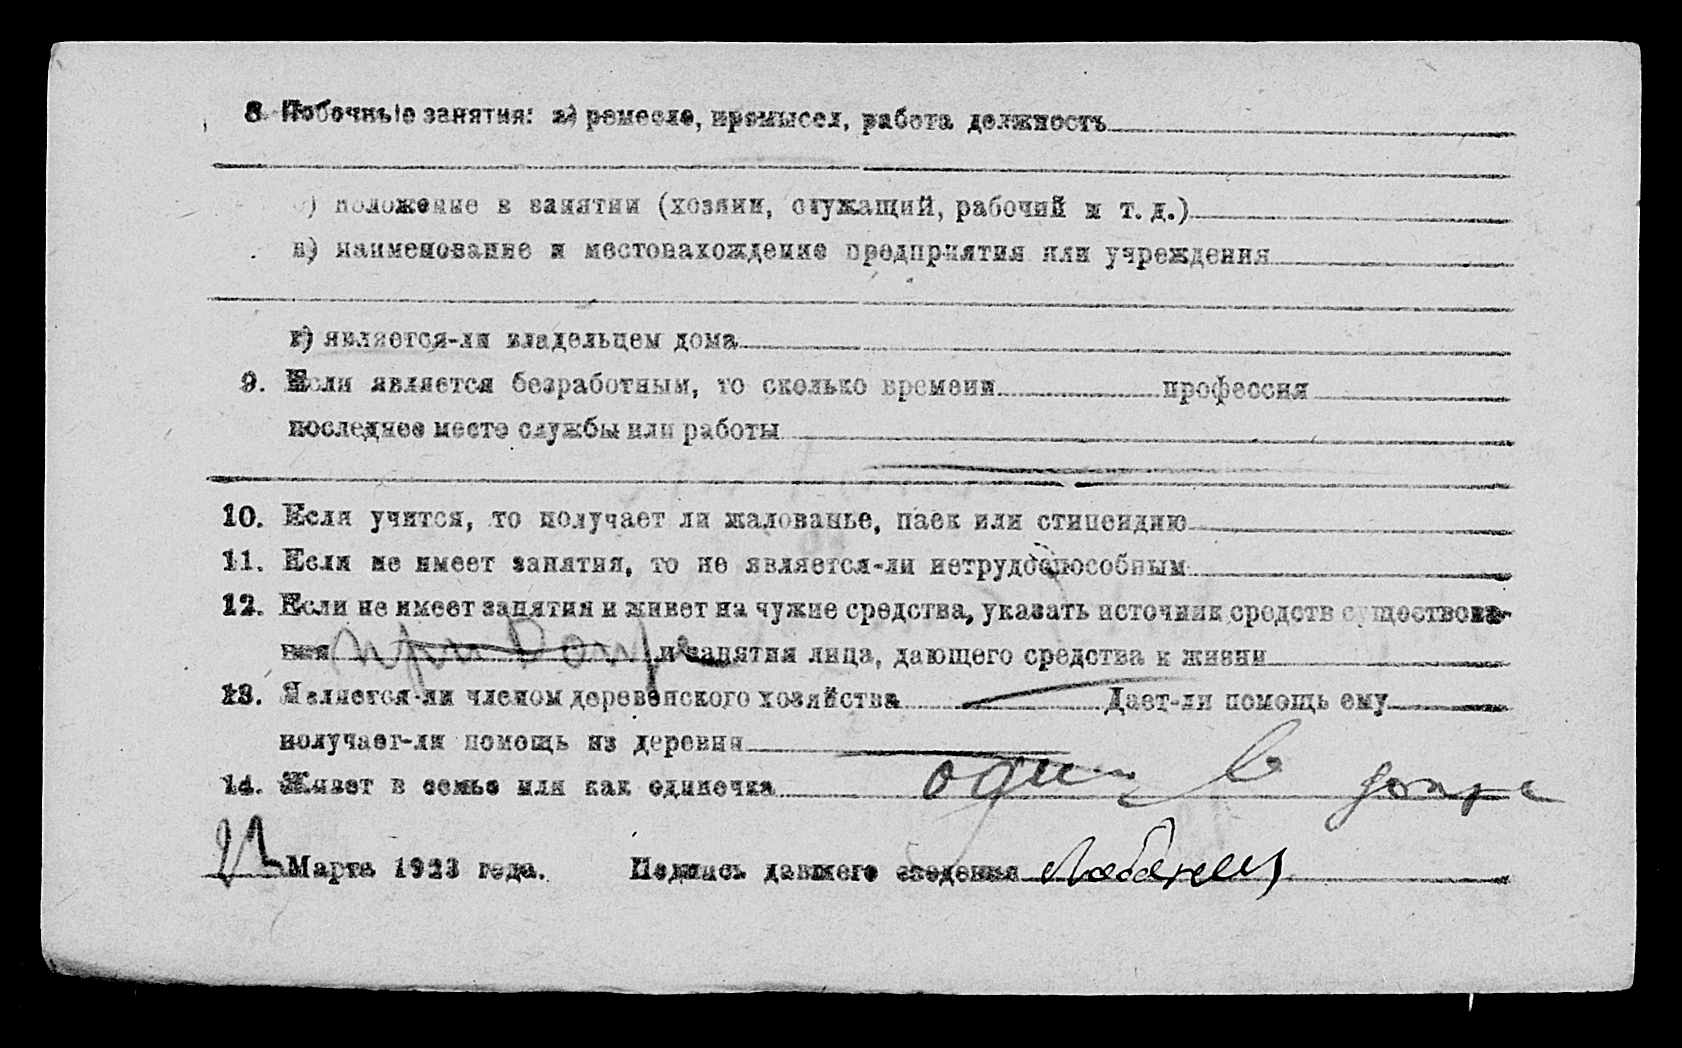 8. Побочные занятия: а) ремесло, промысел, работа должность
б) положение в занятии (хозяин, служащий, рабочий и т. д.)
в) наименование и местонахождение предприятия или учреждения
г) является-ли владельцем дома
9. Если является безработным, то сколько времени профессия
последнее место службы или работы
10. Если учится, то получает ли жалованье, паек или стипендию
11. Если не имеет занятия, то не является-ли нетрудоспособным
12. Если не имеет занятия и живет на чужие средства, указать источник средств существова-
ния при и занятия лица, дающего средства к жизни
13. Является-ли членом деревенского хозяйства Дает-ли помощь ему
получает-ли помощь из деревни
14. Живет в семье или как одиночка один в
Марта 1923 года. Подпись давшего сведения